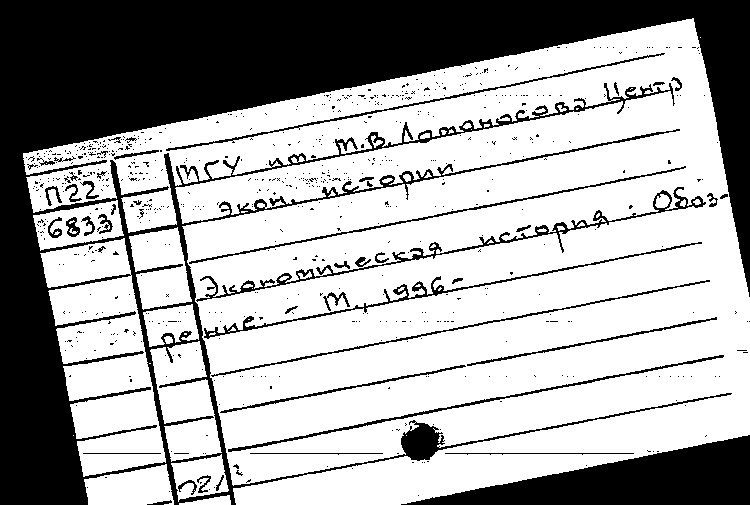 МГУ им. М.В. Ломоносова Центр
П22
экон. истории
6833
Экономическая история: Обоз-
рение. - М., 1996-